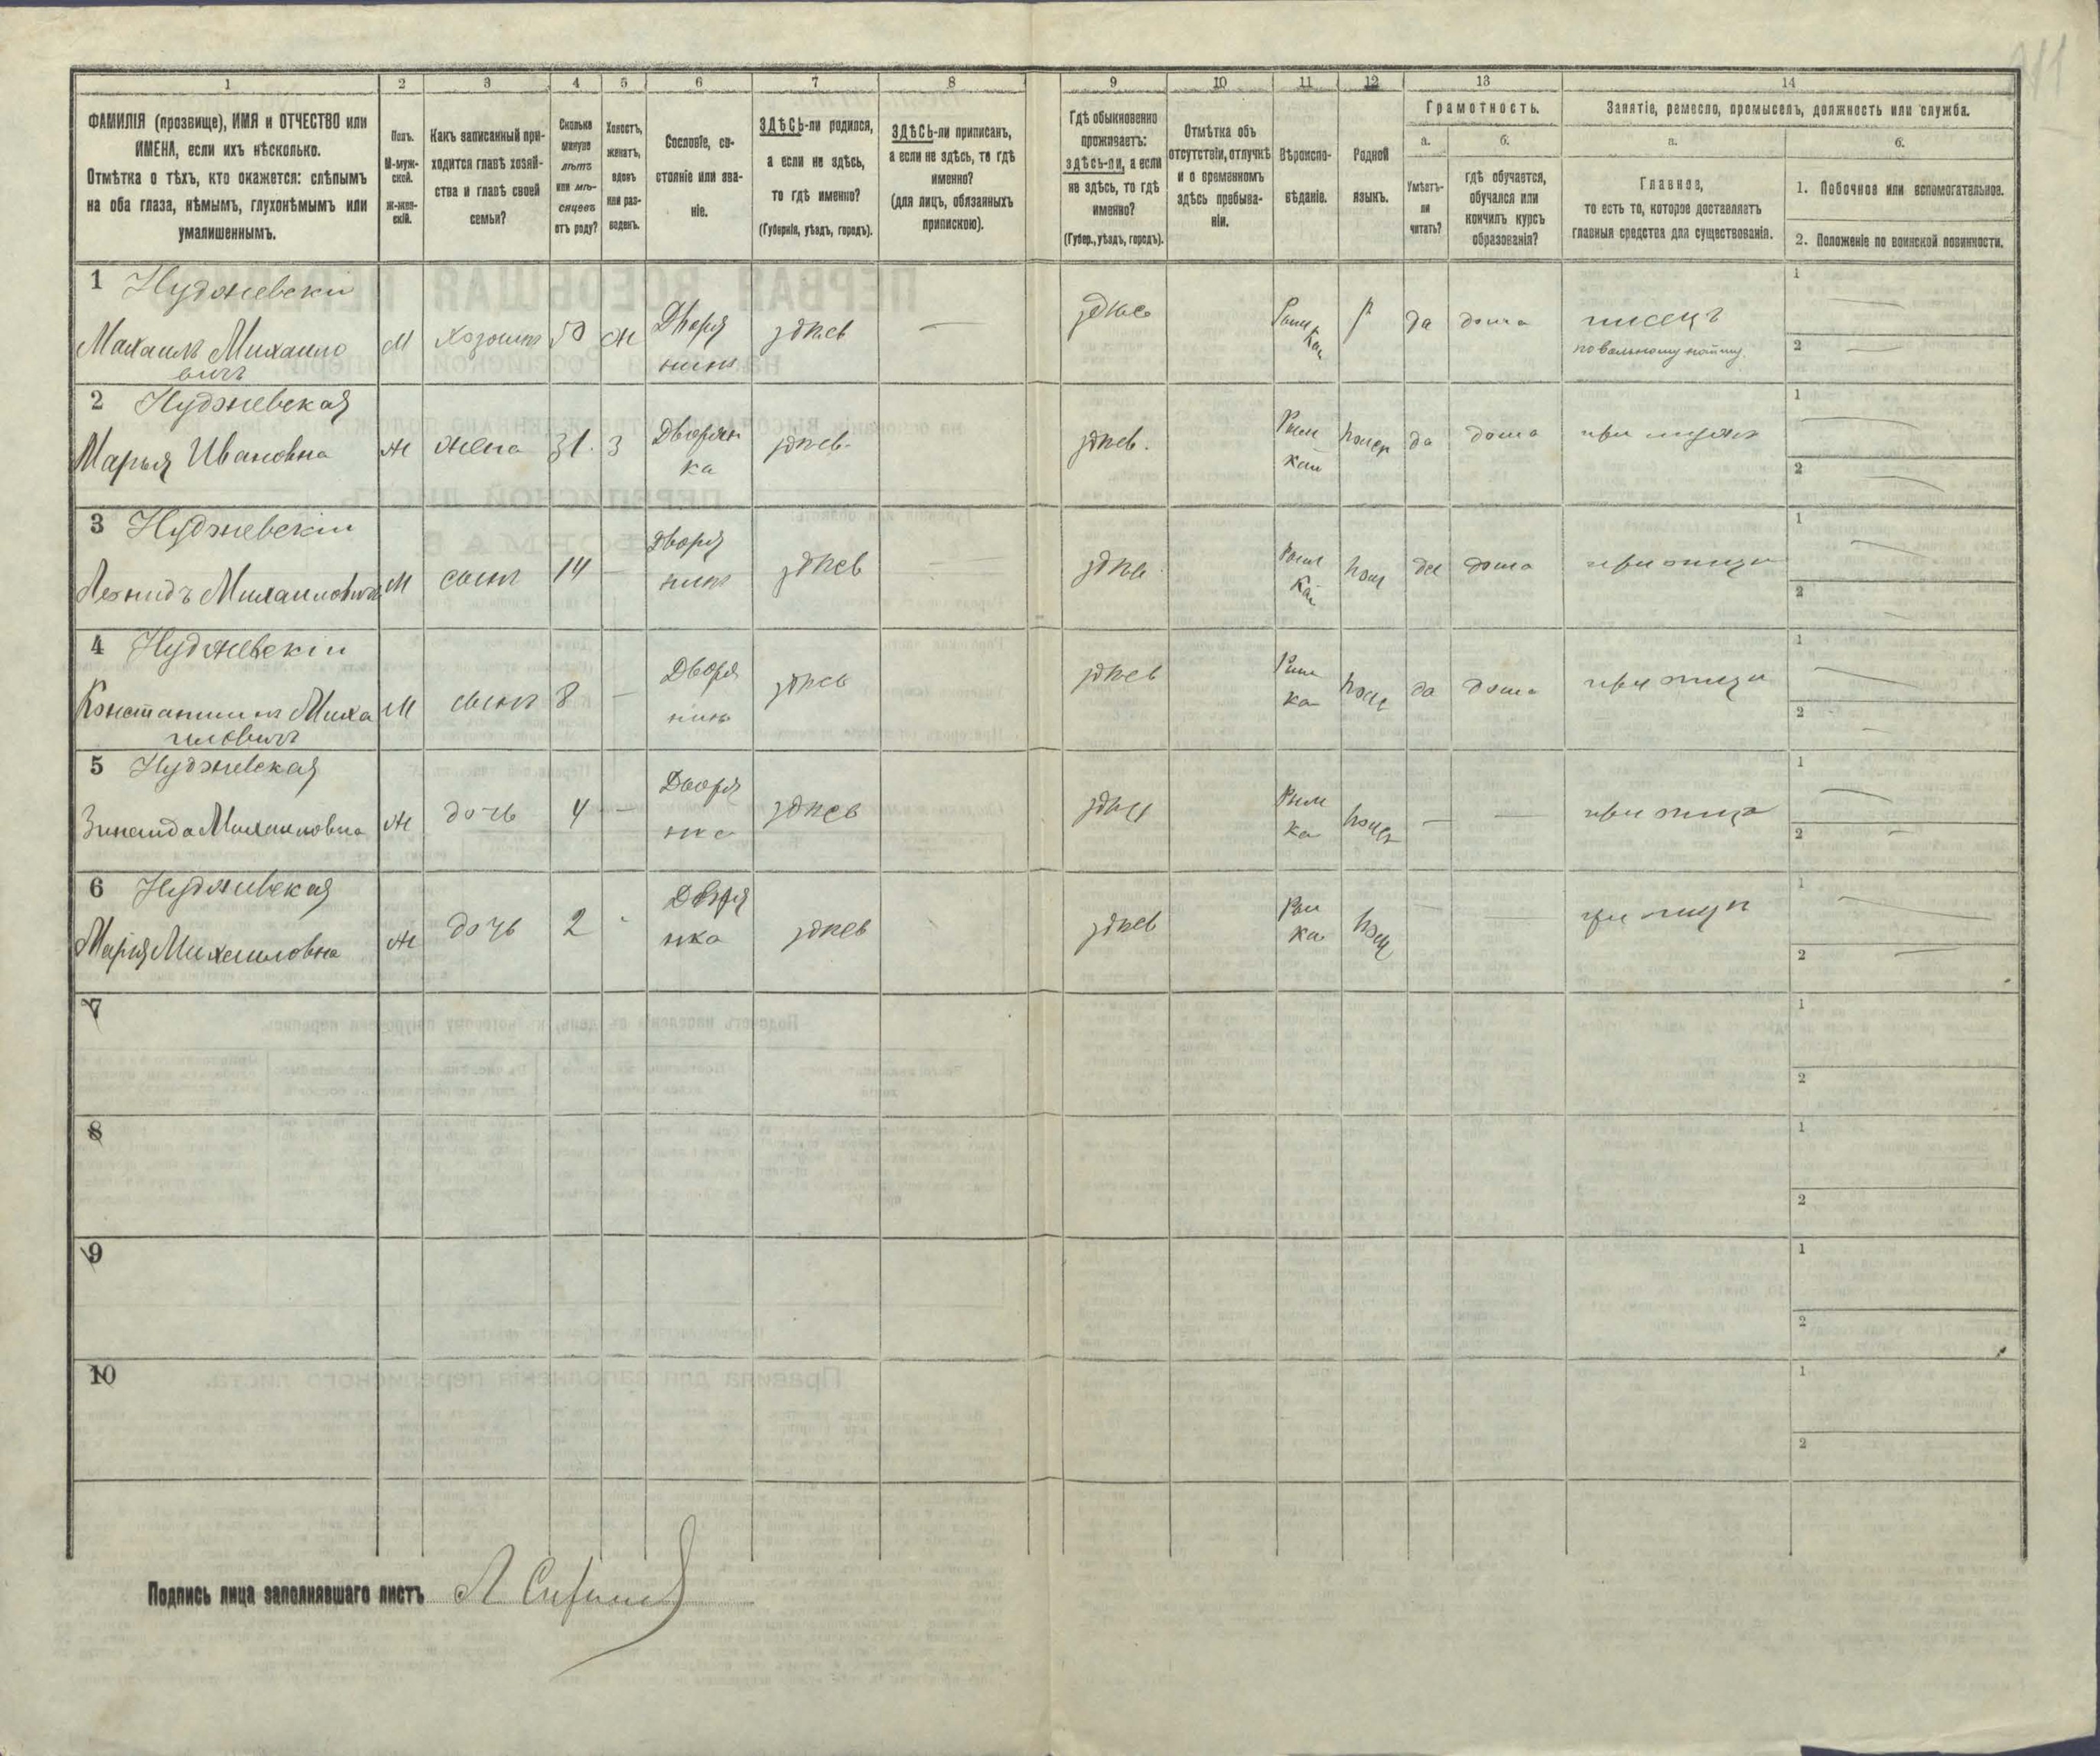 1 2 3 4 5 6 7 8 9 10 11 12 13 14
ФАМИЛІЯ (прозвище), ИМЯ и ОТЧЕСТВО или
ИМЕНА, если ихъ нѣсколько.
Отмѣтка о тѣхъ, кто окажется: слѣпымъ
на оба глаза, нѣмымъ, глухонѣмымъ или
умалишеннымъ.
Полъ.
М-муж-
ской.
Ж-жен-
скій.
Какъ записанный при-
ходится главѣ хозяй-
ства и главѣ своей
семьи?
Сколько
минуло
лѣтъ
или мѣ-
сяцевъ
отъ роду?
Холостъ,
женатъ,
вдовъ
или раз-
веденъ.
Сословіе, со-
стояніе или зва-
ніе.
ЗДѢСЬ-ли родился,
а если не здѣсь,
то гдѣ именно?
(Губернія, уѣздъ, городъ).
ЗДѢСЬ-ли приписанъ,
а если не здѣсь, то гдѣ
именно?
(для лицъ, обязанныхъ
припискою).
Гдѣ обыкновенно
проживаетъ:
здѣсь-ли, а если
не здѣсь, то гдѣ
именно?
(Губер., уѣздъ, городъ).
Отмѣтка объ
отсутствіи, отлучкѣ
и о временномъ
здѣсь пребыва-
ніи.
Вѣроиспо-
вѣданіе.
Родной
языкъ.
Грамотность.
а.
Умѣетъ-
ли
читать?
б.
гдѣ обучается,
обучался или
кончилъ курсъ
образованія?
Занятіе, ремесло, промыселъ, должность или служба.
а.
Главное,
то есть то, которое доставляетъ
главныя средства для существованія.
б.
1. Побочное или вспомогательное.
2. Положеніе по воинской повинности.
1 Нуджевскій
Михаилъ Михайло
вичъ
М хозяинъ 50 Ж Дворя
нинъ
здѣсь — здѣсь Рим
Кат
да дома писецъ
по вольному найму
1 —
2 —
2 Нуджевская
Марья Ивановна Ж жена 31 З Дворян
ка
здѣсь здѣсь. Рим
Кат
да дома при мужѣ
1 —
2 —
3 Нуджевскій
Леонидъ Михаиловичъ М сынъ 14 — Дворя
нинъ
здѣсь — здѣсь да дома при отцѣ
1 —
2 —
4 Нуджевскій
Константинъ Миха
иловичъ
М сынъ 8 — Дворя
нинъ
здѣсь здѣсь да дома при отцѣ
1 —
2 —
5 Нуджевская
Зинаида Михаиловна Ж дочь 4 — Дворя
нка
здѣсь здѣсь — — при отцѣ
1 —
2 —
6 Нуджевская
Марія Михаиловна Ж дочь 2 - Дворя
нка
здѣсь здѣсь — при отцѣ
1 —
2 —
7
1
2
8
1
2
9
1
2
10
1
2
Подпись лица заполнявшаго листъ